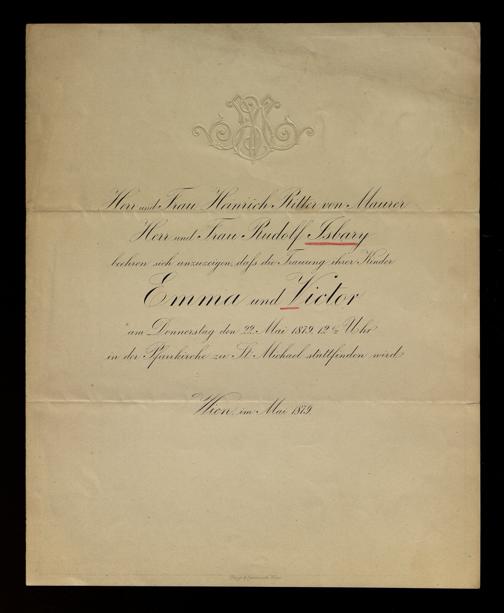 Herr und Frau Heinrich Ritter von Maurer
Herr und Frau Rudolf Isbary
beehren sich anzuzeigen, daß die Trauung ihrer Kinder
Emma und Victor
am Donnerstag den 22. Mai 1879, 12 ½ Uhr
in der Pfarrkirche zu St. Michael stattfinden wird
Wien, im Mai 1879.